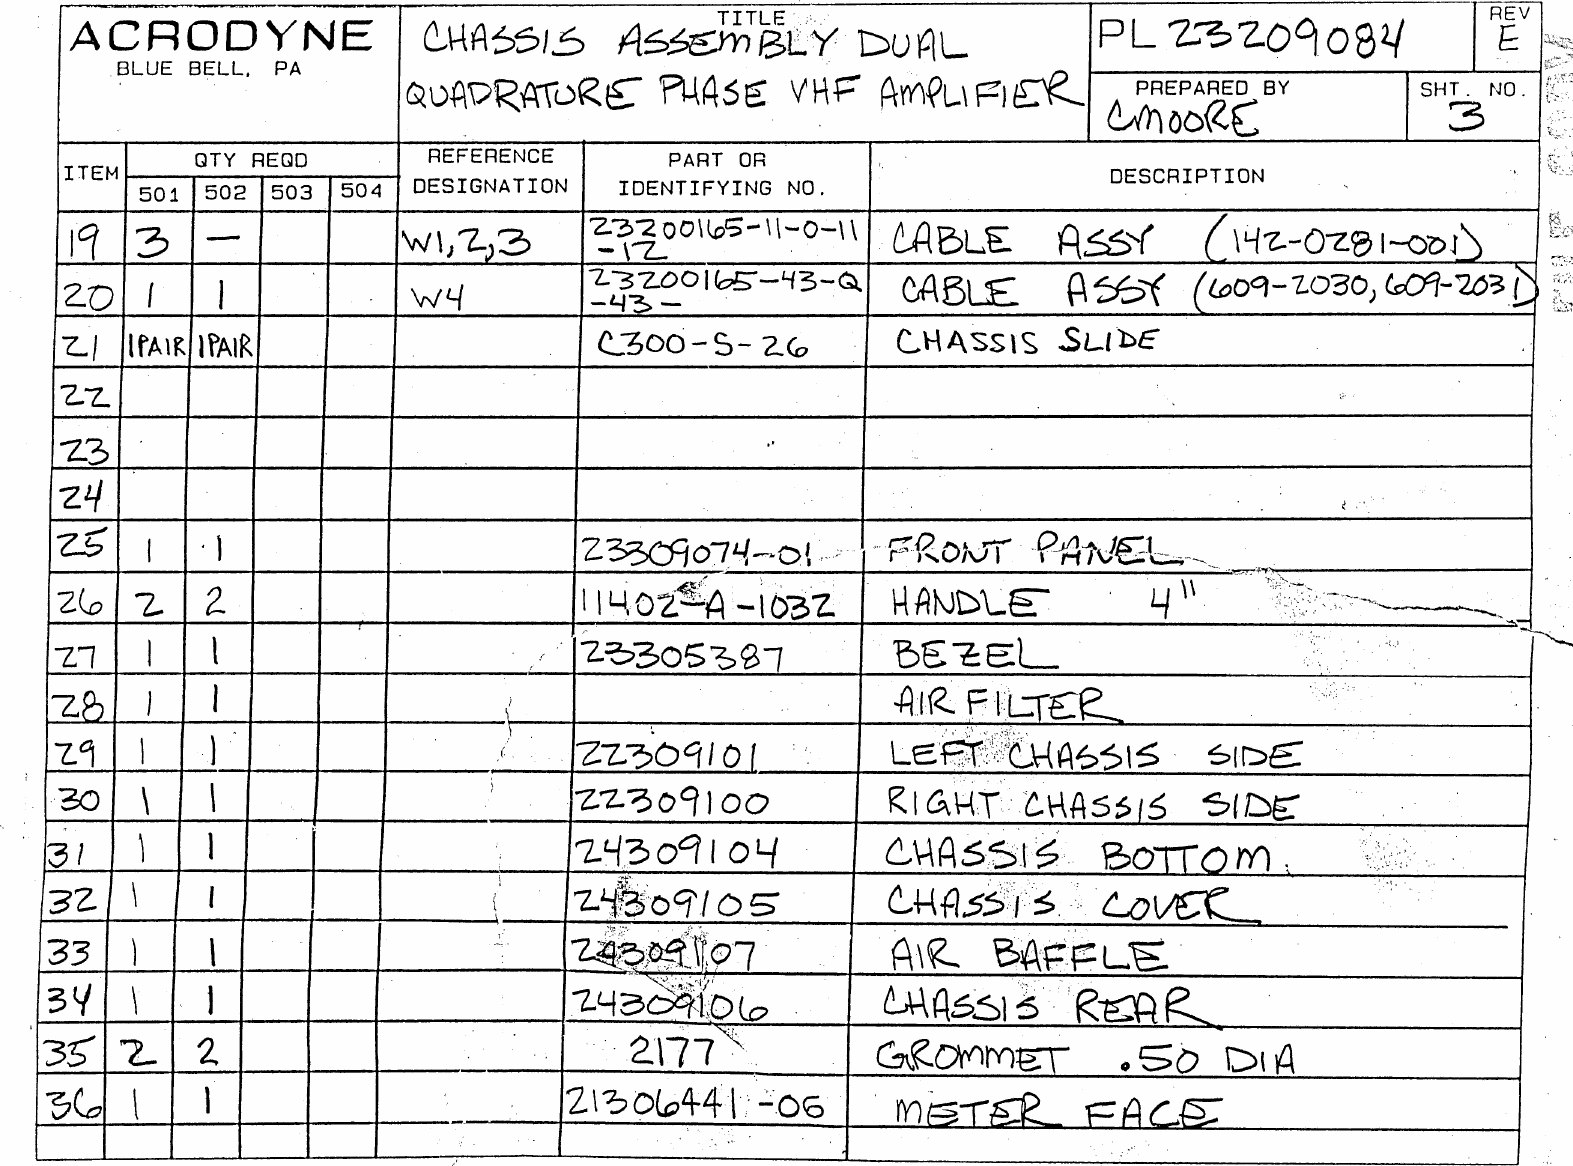 ACRODYNE
BLUE BELL, PA
TITLE
CHASSIS ASSEMBLY DUAL
QUADRATURE PHASE VHF AMPLIFIER
PL 23209084
REV
E
PREPARED BY
CMOORE
SHT. NO.
3
ITEM
QTY REQD
501 502 503 504
REFERENCE
DESIGNATION
PART OR
IDENTIFYING NO.
DESCRIPTION
19 3 — W1,2,3 23200165-11-0-11
-12 CABLE ASSY (142-0281-001)
20 1 1 W4 23200165-43-Q
-43- CABLE ASSY (609-2030, 609-2031)
21 1PAIR 1PAIR C300-S-26 CHASSIS SLIDE
22
23
24
25 1 1 23309074-01 FRONT PANEL
26 2 2 11402-A-1032 HANDLE 4"
27 1 1 23305387 BEZEL
28 1 1 AIR FILTER
29 1 1 22309101 LEFT CHASSIS SIDE
30 1 1 22309100 RIGHT CHASSIS SIDE
31 1 1 24309104 CHASSIS BOTTOM
32 1 1 24309105 CHASSIS COVER
33 1 1 24309107 AIR BAFFLE
34 1 1 24309106 CHASSIS REAR
35 2 2 2177 GROMMET .50 DIA
36 1 1 21306441-06 METER FACE